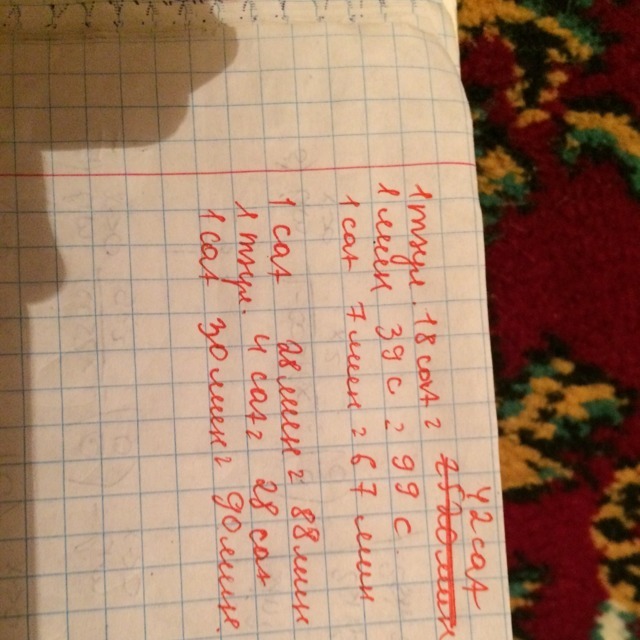 1 тәул. 18 сағ = 42 сағ
1 мин 39 с = 99 с
1 сағ 7 мин = 67 мин
1 сағ 28 мин = 88 мин
1 тәул. 4 сағ = 28 сағ
1 сағ 30 мин = 90 мин